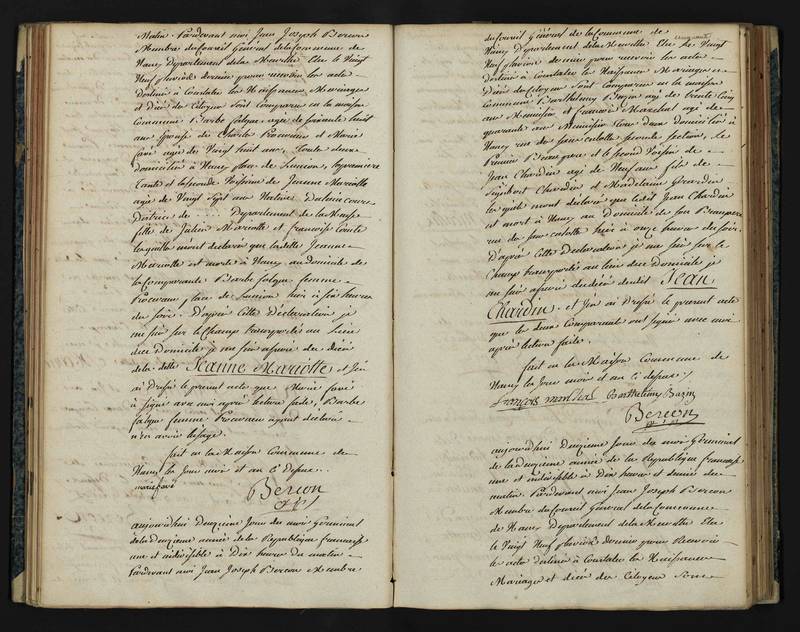 Matin. Pardevant moi Jean Joseph Bercon
Membre du Conseil Général de la Commune de
Nancy Département de la Meurthe Elu le Vingt
Neuf pluviôse dernier pour recevoir les actes
Destinés à Constater les Naissances, Mariages
et Décès des Citoyens Sont Comparus en la maison
Commune Barbe salque agée de soixante huit
ans Epouse de Charles Procureur et Marie
favé agée de Vingt huit ans, toute deux
domiciliées à Nancy place de l'union, la premiere
tante et la seconde Voisinne de Jeanne Mariotte
agée de Vingt Sept ans Native
District de .... Département de la Meuse
fille de Julien Mariotte et françoise Comte
lesquelles m'ont déclaré que ladite Jeanne
Mariotte est morte à Nancy au domicile de
la Comparante Barbe salque femme
Procureur place de l'union hier à six heures
du soir. D'après Cette Déclaration je
me suis sur le Champ transporté au Lieu
dudit Domicile je me suis assuré du décès
de la dite Jeanne Mariotte et j'en
ai Dressé le present acte que Marie favé
à signé avec moi après lecture faite, Barbe
salque femme Procureur ayant déclaré
n'en avoir l'usage.
fait en la Maison Commune de
Nancy les Jour mois et an Ci dessus..
marie favé
Bercon
aujourd'hui Deuxième Jour du mois Germinal
de la deuxième année de la République française
une et indivisible à Dix heures du matin
Pardevant moi Jean Joseph Bercon Membre
du Conseil Général de la Commune de
Nancy Département de la Meurthe Elu le Vingt
Neuf pluviôse dernier pour recevoir les actes
Destinés à Constater les Naissances Mariages et
Décès des Citoyens Sont Comparus en la maison
Commune Barthelemy Bazin agé de trente Cinq
ans Menuisier et françois Marchal agé de
quarante ans Menuisier tous deux domiciliés à
Nancy rue des sans culotte seconde section, le
Premier Beaupere et le second Voisin de
Jean Chardin agé de Neuf ans fils de
Sigisbert Chardin et Madelaine Girardin
lesquels m'ont déclaré que ledit Jean Chardin
est mort à Nancy au Domicile de son Beaupere
rue des sans culotte hier à onze heures du soir.
D'après Cette Déclaration je me suis sur le
Champ transporté au lieu dudit Domicile je
me suis assuré du décès dudit Jean
Chardin. et j'en ai Dressé le present acte
que les deux Comparants ont signé avec moi
après lecture faite.
fait en la Maison Commune de
Nancy les Jour mois et an Ci dessus
françois marchal Barthelemy Bazin
Bercon
aujourd'hui Deuxième Jour du mois Germinal
de la deuxième année de la République française
une et indivisible à Dix heures et demie du
matin. Pardevant moi Jean Joseph Bercon
Membre du Conseil Général de la Commune
de Nancy Département de la Meurthe Elu
le Vingt Neuf pluviôse dernier pour Recevoir
les actes destinés à Constater les Naissances
Mariages et décès des Citoyens Sont